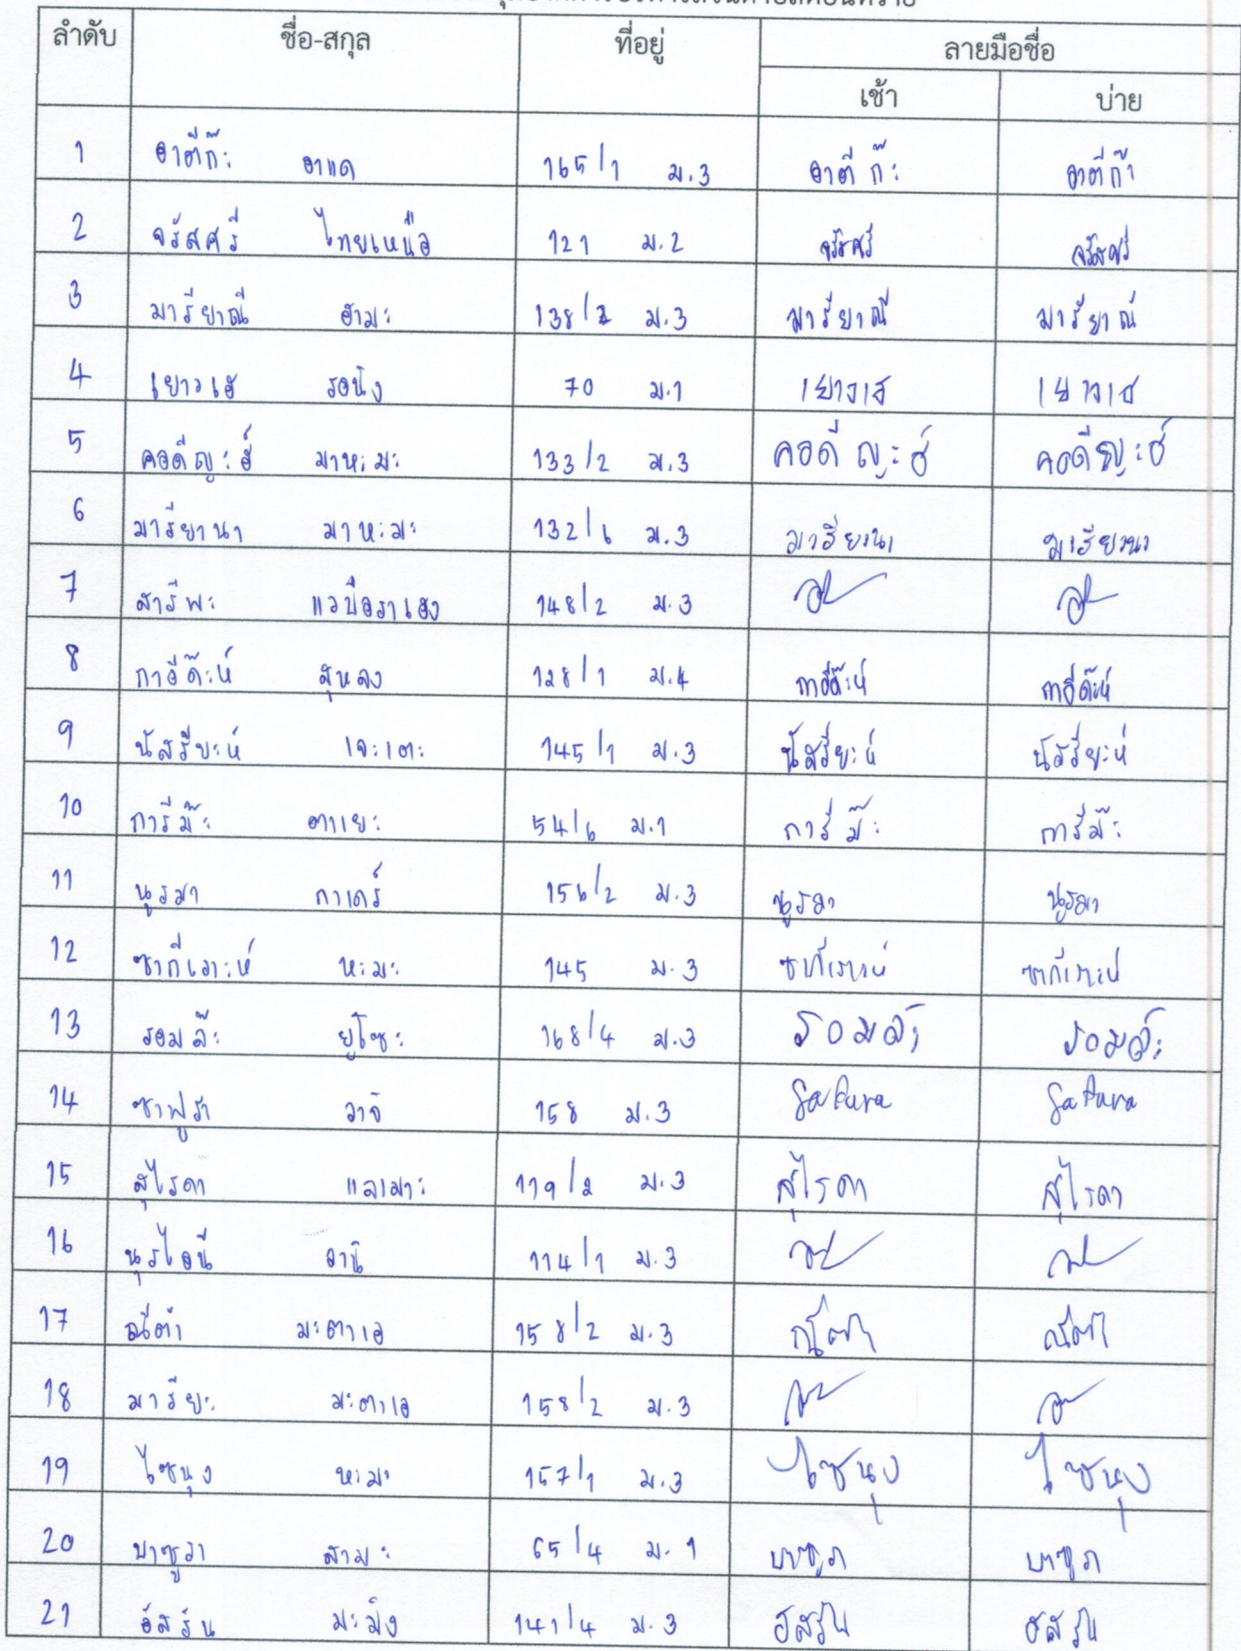 ลำดับ ชื่อ-สกุล ที่อยู่ ลายมือชื่อ
เช้า บ่าย
1 อาตีก๊ะ อาแด 165/1 ม.3 อาตีก๊ะ อาตีก๊ะ
2 จรัสศรี ไทยเหนือ 121 ม.2 จรัสศรี จรัสศรี
3 มารียาณี ฮามะ 138/2 ม.3 มารียาณี มารียาณี
4 เยาวเฮ รอนิง 70 ม.1
5 คอดีญะฮ์ มาหะมะ 133/2 ม.3 คอดีญะฮ์ คอดีญะฮ์
6 มารียานา มาหะมะ 132/6 ม.3 มารียานา มารียานา
7 สารีพะ แวบือราเฮง 148/2 ม.3
8 กาอีด๊ะห์ สุหลง 128/1 ม.4 กาอีด๊ะห์ กาอีด๊ะห์
9 นัสรียะห์ เจะเตะ 145/1 ม.3 นัสรียะห์ นัสรียะห์
10 การีม๊ะ ตาแยะ 54/6 ม.1 การีม๊ะ การีม๊ะ
11 นูรมา กาเดร์ 156/2 ม.3 นูรมา นูรมา
12 ซากีเราะห์ หะมะ 145 ม.3 ซากีเราะห์ ซากีเราะห์
13 รอมล๊ะ ยูโซะ 168/4 ม.3 รอมล๊ะ รอมล๊ะ
14 ซาฟูรา วาจิ 158 ม.3 Safura Safura
15 สุไรดา แลเมาะ 119/2 ม.3 สุไรดา สุไรดา
16 นุรไอนี อานิ 114/1 ม.3
17 ณีต๊า มะตาเฮ 158/2 ม.3
18 มารียะ มะตาเฮ 158/2 ม.3
19 ไซนุง หะมะ 157/1 ม.3 ไซนุง ไซนุง
20 บาซูรา สามะ 65/4 ม.1 บาซูรา บาซูรา
21 อัสรัน มะมิง 141/4 ม.3